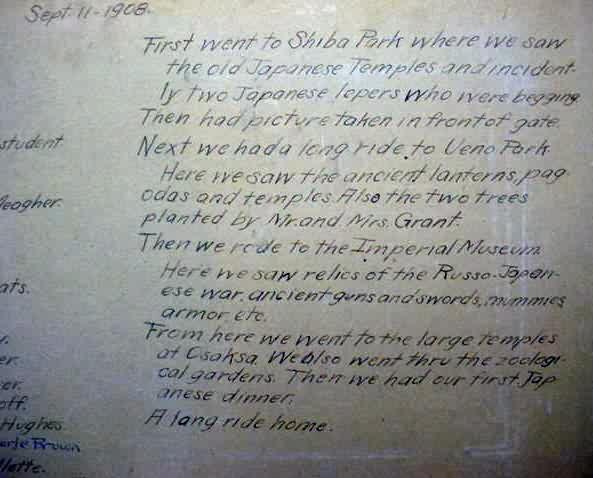 Sept. 11-1908.
First went to Shiba Park where we saw
the old Japanese Temples and incident-
ly two Japanese lepers who were begging.
Then had picture taken in front of gate.
student
Next we had a long ride to Ueno Park
Here we saw the ancient lanterns, pag-
odas and temples. Also the two trees
eagher.
planted by Mr. and Mrs. Grant.
Then we rode to the Imperial Museum.
Here we saw relics of the Russo-Japan-
ese war, ancient guns and swords, mummies
ats.
armor, etc.
From here we went to the large temples
r.
at Osaksa. We also went thru the zoologi-
er.
cal gardens. Then we had our first Jap
er.
anese dinner.
off.
A long ride home.
Hughes.
erle Brown
llette.